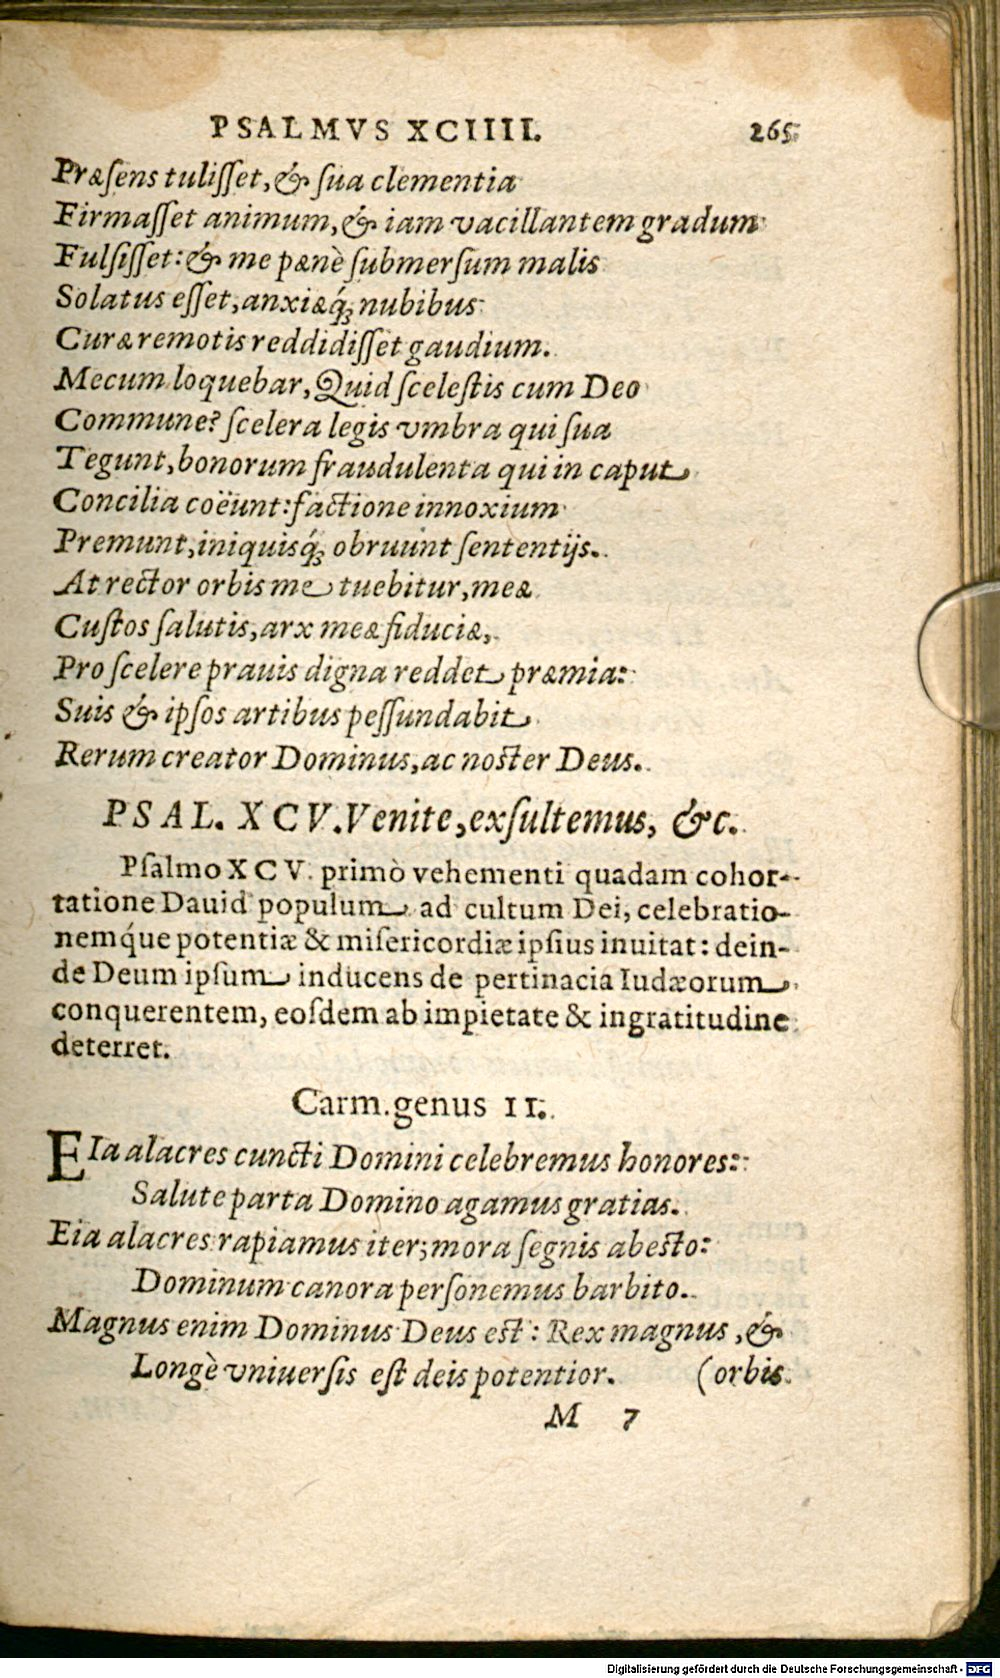 PSALMVS XCIIII. 265
Præſens tuliſſet, & ſua clementia
Firmaſſet animum, & iam vacillantem gradum
Fulſiſſet: & me pænè ſubmerſum malis
Solatus eſſet, anxiæq́; nubibus
Curæ remotis reddidiſſet gaudium.
Mecum loquebar, Quid ſceleſtis cum Deo
Commune? ſcelera legis vmbra qui ſua
Tegunt, bonorum fraudulenta qui in caput
Concilia coëunt: factione innoxium
Premunt, iniquisq́; obruunt ſententijs.
At rector orbis me tuebitur, meæ
Cuſtos ſalutis, arx meæ fiduciæ,
Pro ſcelere prauis digna reddet præmia:
Suis & ipſos artibus peſſundabit
Rerum creator Dominus, ac noſter Deus.
PSAL. XCV. Venite, exſultemus, &c.
Pſalmo XCV. primò vehementi quadam cohor-
tatione Dauid populum ad cultum Dei, celebratio-
nemq́ue potentiæ & miſericordiæ ipſius inuitat: dein-
de Deum ipſum inducens de pertinacia Iudæorum
conquerentem, eoſdem ab impietate & ingratitudine
deterret.
Carm. genus II.
EIa alacres cuncti Domini celebremus honores:
Salute parta Domino agamus gratias.
Eia alacres rapiamus iter; mora ſegnis abeſto:
Dominum canora perſonemus barbito.
Magnus enim Dominus Deus eſt: Rex magnus, &
Longè vniuerſis eſt deis potentior. (orbis
M 7
Digitalisierung gefördert durch die Deutsche Forschungsgemeinschaft - DFG